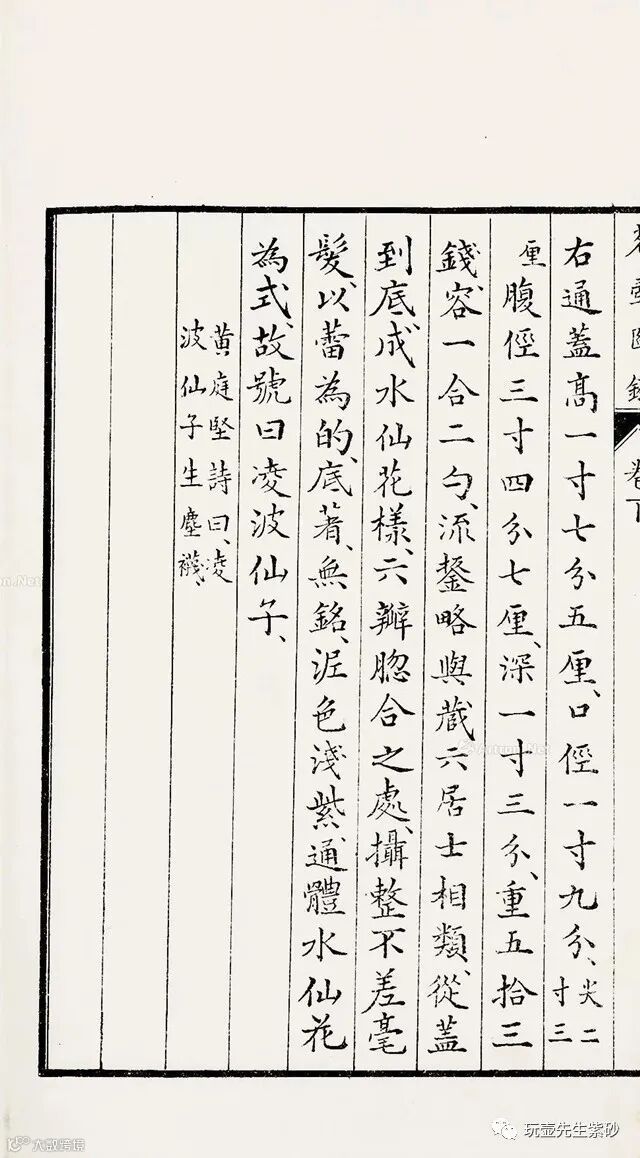 茗壺圖録 卷下
右通蓋高一寸七分五厘、口俓一寸九分、尖二寸三
厘腹俓三寸四分七厘、深一寸三分、重五拾三
錢、容一合二勺、流鋬略與蔵六居士相類、從蓋
到底成水仙花樣、六瓣脗合之處、攝整不差毫
髮、以蕾為的、底著、無銘、泥色淺紫、通體水仙花
為式、故號曰凌波仙子、
黄庭堅詩曰、凌
波仙子生塵襪、
Artron.Net
大数跨境
玩壶先生紫砂